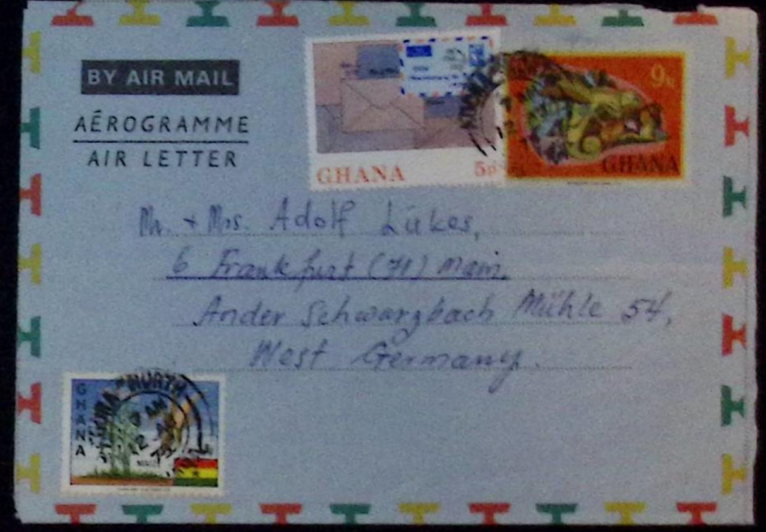 BY AIR MAIL
AÉROGRAMME
AIR LETTER
GHANA 5p
9p
GHANA
Mr. + Mrs. Adolf Lükes,
6 Frankfurt (71) Main,
Ander Schwarzbach Mühle 54,
West Germany.
GHANA
NORTH